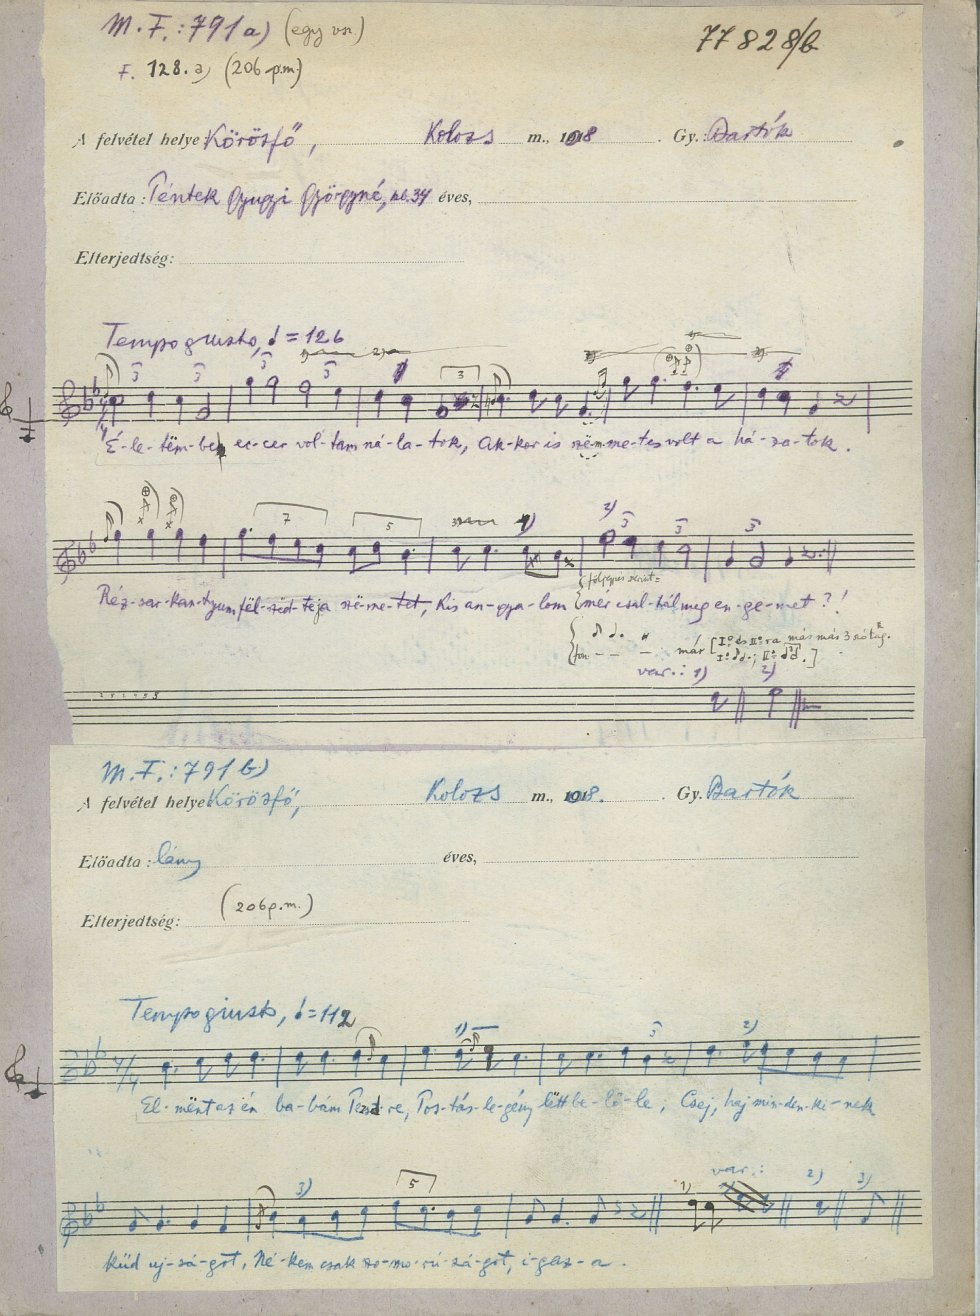 M. F.: 791 a) (egy vsz.)
77828/b
F. 128. a) (206 p.m.)
A felvétel helye Körösfő, Kolozs m., 1918. Gy.: Bartók
Előadta: Péntek Gyugyi Györgyné, 34 éves,
Elterjedtség:
Tempo giusto, ♩ = 126
É-le-tëm-be ec-cer vol-tam ná-la-tok, Ak-kor is në-me-tes volt a há-za-tok.
Réz-sar-kan-tyum fël-vëd-te ja në-me-tet, Kis an-gya-lom mér csal-tál meg en-ge-met?!
már
var.: 1) 2)
M. F.: 791 b)
A felvétel helye Körösfő, Kolozs m., 1918. Gy. Bartók
Előadta: lány éves,
Elterjedtség: (206 p.m.)
Tempo giusto, ♩ = 112
El-mënt az én ba-bám Pest-re, Pos-tás-le-gény lëtt be-lő-le; Csej, haj min-den-ki-nek
var.: 1) 2) 3)
küd uj-sá-got, Né-kem csak szo-mo-rú-sá-got, i-gaz-a.